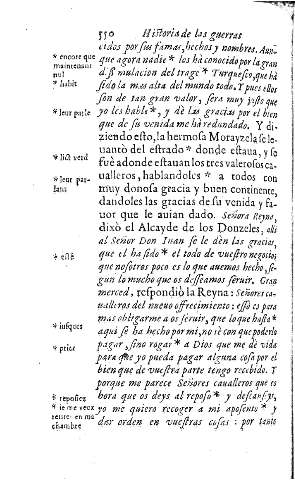 550 Historia de las guerras
cidos por sus famas, hechos y nombres. Aun-
* encore que maintenant nul
que agora nadie * los ha conocido por la gran
dissimulacion del trage * Turquesco, que há
* habit
sido la mas alta del mundo todo. Y pues ellos
son de tan gran valor, sera muy justo que
* leur parle
yo les hable *, y dè las gracias por el bien
que de su venida me hà redundado. Y di-
ziendo esto, la hermosa Morayzela se le-
uantò del estrado * donde estaua, y se
* lict verd
fuè adonde estauan los tres valerosos ca-
ualleros, hablandoles * a todos con
* leur parlant
muy donosa gracia y buen continente,
dandoles las gracias de su venida y fa-
uor que le auian dado. Señora Reyna,
dixò el Alcayde de los Donzeles, alli
al Señor Don Iuan se le dèn las gracias,
que el ha sido * el todo de vuestro negocio;
* esté
que nosotros poco es lo que auemos hecho, se-
gun lo mucho que os desseamos seruir. Gran
merced, respondiò la Reyna: Señores ca-
ualleros del nueuo offrecimiento: esso es para
mas obligarme a os seruir, que lo que hasta *
* iusques
aqui se hà hecho por mi, no sè con que poderlo
pagar, sino rogar * a Dios que me dè vida
* prier
para que yo pueda pagar alguna cosa por el
bien que de vuestra parte tengo recebido. Y
porque me parece Señores caualleros que es
hora que os deys al reposo * y descanseys,
* reposer
yo me quiero recoger a mi aposento * y
* ie me veux retirer en ma chambre
dar orden en vuestras cosas: por tanto